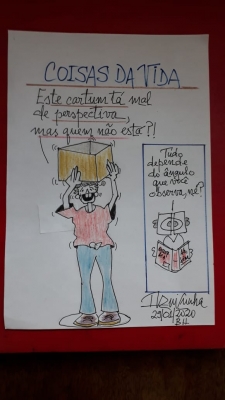 COISAS DA VIDA
Este cartum tá mal
de perspectiva,
mas quem não está?!
Tudo
depende
do ângulo
que você
observa, né?
29/04/2020
BH